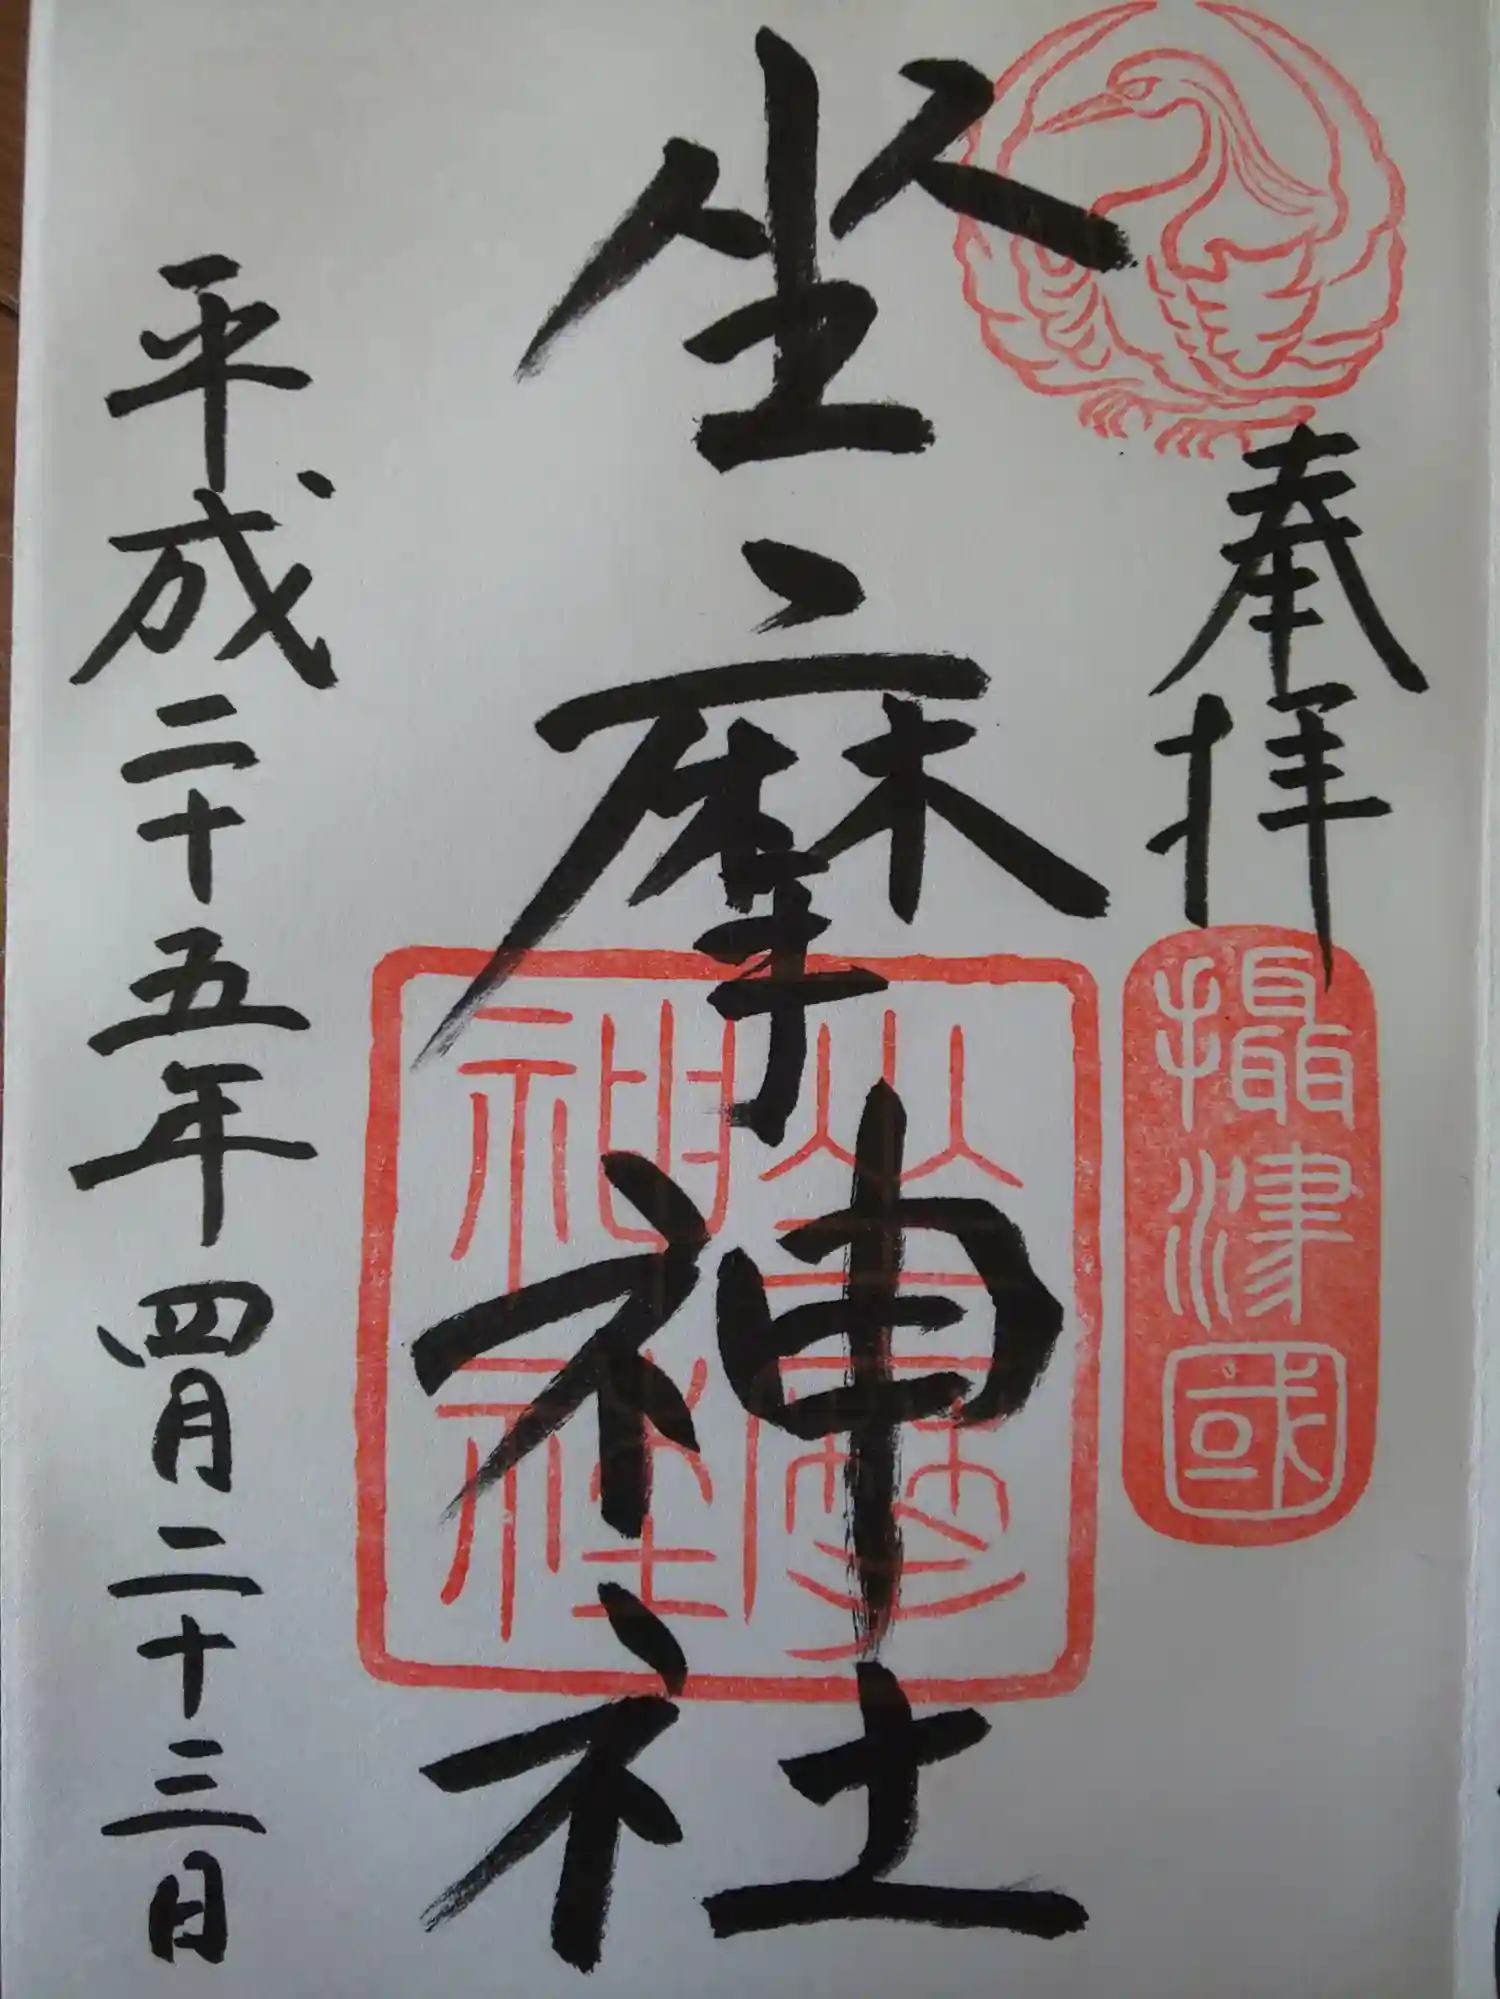 奉拝
攝津國
坐摩神社
坐摩
神社
平成二十五年四月二十三日